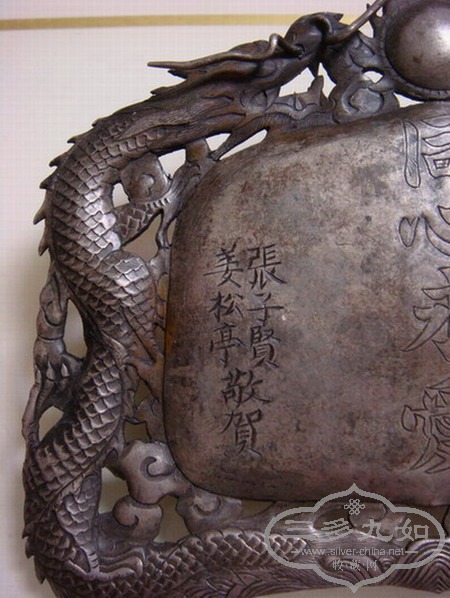 同心永愛
張子賢
姜松亭敬賀
三多九如
www.silver-china.net
收藏网